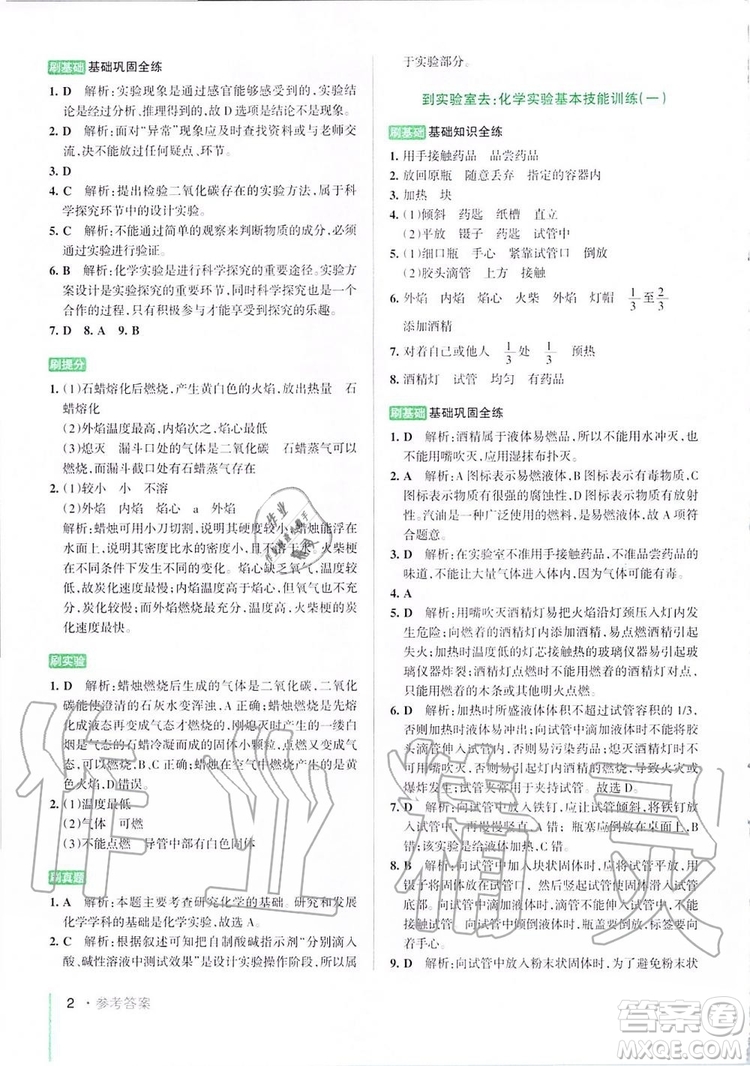 刷基础 基础巩固全练
1. D 解析:实验现象是通过感官能够感受到的,实验结论是经过分析、推理得到的,故D选项是结论不是现象。
2. D 解析:面对“异常”现象应及时查找资料或与老师交流,不能放过任何疑点、环节。
3. D
4. C 解析:提出检验二氧化碳存在的实验方法,属于科学探究环节中的设计实验。
5. C 解析:不能通过简单的观察来判断物质的成分,必须通过实验进行验证。
6. B 解析:化学实验是进行科学探究的重要途径。实验方案设计是实验的重要环节,同时,科学探究也是一个合作的过程,积极参与才能享受探究的乐趣。
7. D 8. A 9. B
刷提分
1. (1)石蜡熔化后燃烧,产生黄白色的火焰,放出热量 石蜡熔化
(2)外焰温度最高,内焰次之,焰心最低
(3)熄灭 漏斗口处的气体是二氧化碳 石蜡蒸气可以燃烧
2. (1)硬度较小 小 不溶
(2)外焰 内焰 焰心 a 外焰
解析:蜡烛可用小刀切割,说明其硬度较小,蜡烛能浮在水面上,说明其密度比水的小且不溶于水。火柴梗在不同条件下发生不同的变化。焰心乏氧、温度低,火柴梗炭化速度最慢;内焰温度较高、氧气供应不充分,炭化较慢;而外焰温度高、氧气充足,火柴梗的炭化速度最快。
刷实验
1. D 解析:蜡烛燃烧后生成的气体是二氧化碳,二氧化碳能使澄清的石灰水变浑浊,A正确;蜡烛燃烧是先熔化成液态再变成气态才燃烧的,刚熄灭时产生的一缕白烟是气态的石蜡冷凝而成的固体小颗粒,点燃白烟,火焰会顺着白烟将蜡烛点燃,B、C正确;蜡烛在空气中燃烧还会产生黑色的炭黑,D错误。
2. (1)温度最低
(2)气体 可燃
(3)不能点燃 导管中部有白色固体
刷真题
1. A 解析:本题主要考查研究化学的基础。研究和发展化学学科的基础是化学实验,故选A。
2. C 解析:根据叙述可把自制酸碱指示剂“分别滴入酸、碱性溶液中测试效果”是设计实验操作阶段,所以属
2·参考答案
于实验部分。
到实验室去:化学实验基本技能训练(一)
刷基础 基础知识全练
1. 用手接触药品 品尝药品
2. 放回原瓶 随意丢弃 指定的容器内
3. 加热 块
4. (1)倾斜 药匙 纸槽 直立
(2)平放 镊子 试管中
5. (1)细口瓶 手心 紧靠试管口 倒放
(2)胶头滴管 上方 接触
6. 外焰 内焰 焰心 火柴 外焰 灯帽 1/3至2/3
添加酒精
7. 对着自己或他人 1/3处 1/3
8. 酒精灯 试管 均匀 有药品
刷基础 基础巩固全练
1. D 解析:酒精属于液体易燃品,所以不能用水冲灭,也不能用嘴吹灭。应用湿抹布扑灭。
2. A 解析:A图标表示易燃液体,B图标表示有毒物质,C图标表示物质有很强的腐蚀性,D图标表示物质有放射性。汽油是一种广泛使用的燃料,易燃,故A项符合题意。
3. D 解析:在实验室不准用手接触药品、品尝药品的味道,不能让大量气体进入鼻孔。
4. A
5. D 解析:用嘴吹灭酒精灯易把火焰沿灯颈压入灯内发生危险;向燃着的酒精灯添加酒精、易点燃酒精引起失火;加热时温度低的灯芯易接触热的玻璃仪器易引起玻璃仪器炸裂;点燃酒精灯时不能用酒精灯对点,可用燃着的木条或其他火源引燃。
6. D 解析:加热时所盛液体体积不能超过试管容积的1/3,否则加热时液体易喷出伤人;使用胶头滴管滴液时,胶头滴管不能伸入试管内,否则易污染药品;熄灭酒精灯时不能用嘴吹灭酒精灯,否则可能导致火灾或引发爆炸发生;试管用后必须洗干净。故选D。
7. D 解析:向试管中放入铁钉,应让试管倾斜,将铁钉放在试管口处,再慢慢竖起,A错;瓶塞应倒放桌上,B错;该实验是加热固体,试管口应略向下倾斜,C错。
8. A 解析:向试管中加入块状固体时,应把试管平放,将药品放在试管口,再慢慢竖起试管,使固体滑落到试管底部。向试管中加入液体时,胶头滴管不能伸入,不能接触试管口。向试管中倾倒液体时,瓶盖要倒放,标签向着手心。
9. D 解析:向试管中放入粉末状固体药品时,应先将块
作业精灵
答案圈
MXQE.COM